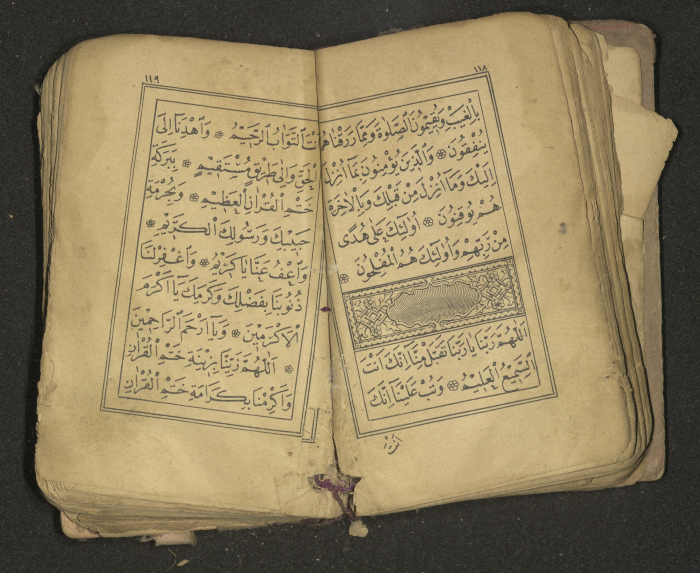 ١١٨
بِالْغَيْبِ وَيُقِيمُونَ الصَّلٰوةَ وَمِمَّا رَزَقْنَاهُمْ
يُنْفِقُونَ ❁ وَالَّذِينَ يُؤْمِنُونَ بِمَا اُنْزِلَ
اِلَيْكَ وَمَا اُنْزِلَ مِنْ قَبْلِكَ وَبِالْاٰخِرَةِ
هُمْ يُوقِنُونَ ❁ اُولٰئِكَ عَلٰى هُدًى
مِنْ رَبِّهِمْ وَاُولٰئِكَ هُمُ الْمُفْلِحُونَ ❁
اَللّٰهُمَّ رَبَّنَا يَا رَبَّنَا تَقَبَّلْ مِنَّا اِنَّكَ اَنْتَ
السَّمِيعُ الْعَلِيمُ ❁ وَتُبْ عَلَيْنَا اِنَّكَ
١١٩
اَنْتَ التَّوَّابُ الرَّحِيمُ ❁ وَاهْدِنَا اِلَى
الْحَقِّ وَاِلٰى طَرِيقٍ مُسْتَقِيمٍ ❁ بِبَرَكَةِ
خَتْمِ الْقُرْاٰنِ الْعَظِيمِ ❁ وَبِحُرْمَةِ
حَبِيبِكَ وَرَسُولِكَ الْكَرِيمِ ❁
وَاعْفُ عَنَّا يَا كَرِيمُ ❁ وَاغْفِرْ لَنَا
ذُنُوبَنَا بِفَضْلِكَ وَكَرَمِكَ يَا اَكْرَمَ
الْاَكْرَمِينَ ❁ وَيَا اَرْحَمَ الرَّاحِمِينَ
❁ اَللّٰهُمَّ زَيِّنَّا بِزِينَةِ خَتْمِ الْقُرْاٰنِ
وَاَكْرِمْنَا بِكَرَامَةِ خَتْمِ الْقُرْاٰنِ